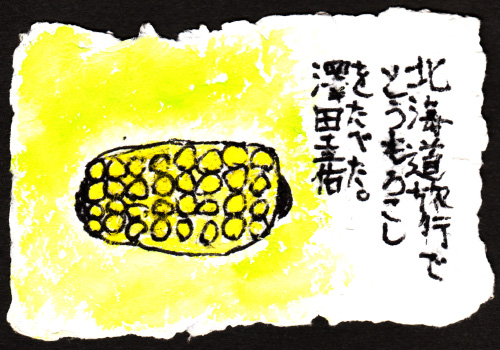 北海道旅行で
とうもろこし
をたべた。
澤田圭佑